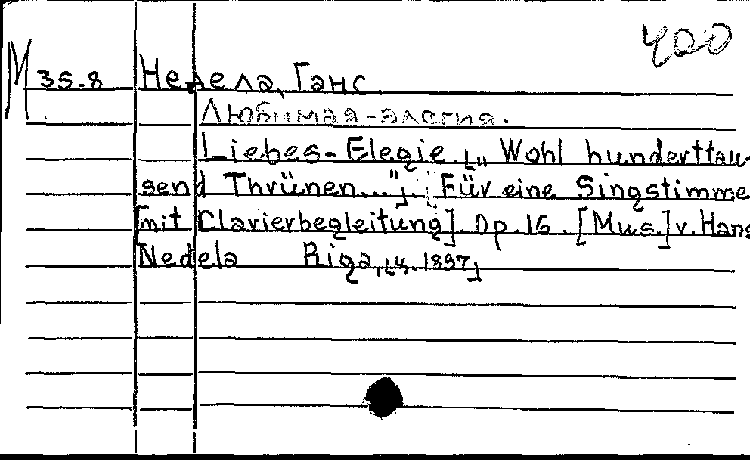 400
M 35-8 Недела, Ганс
Любимая-элегия.
Liebes-Elegie. [„Wohl hunderttau-
send Thrünen..."]. [Für eine Singstimme
[mit Clavierbegleitung]. Op. 16. [Mus.] v. Hans
Nedela Riga, [4. 1897]